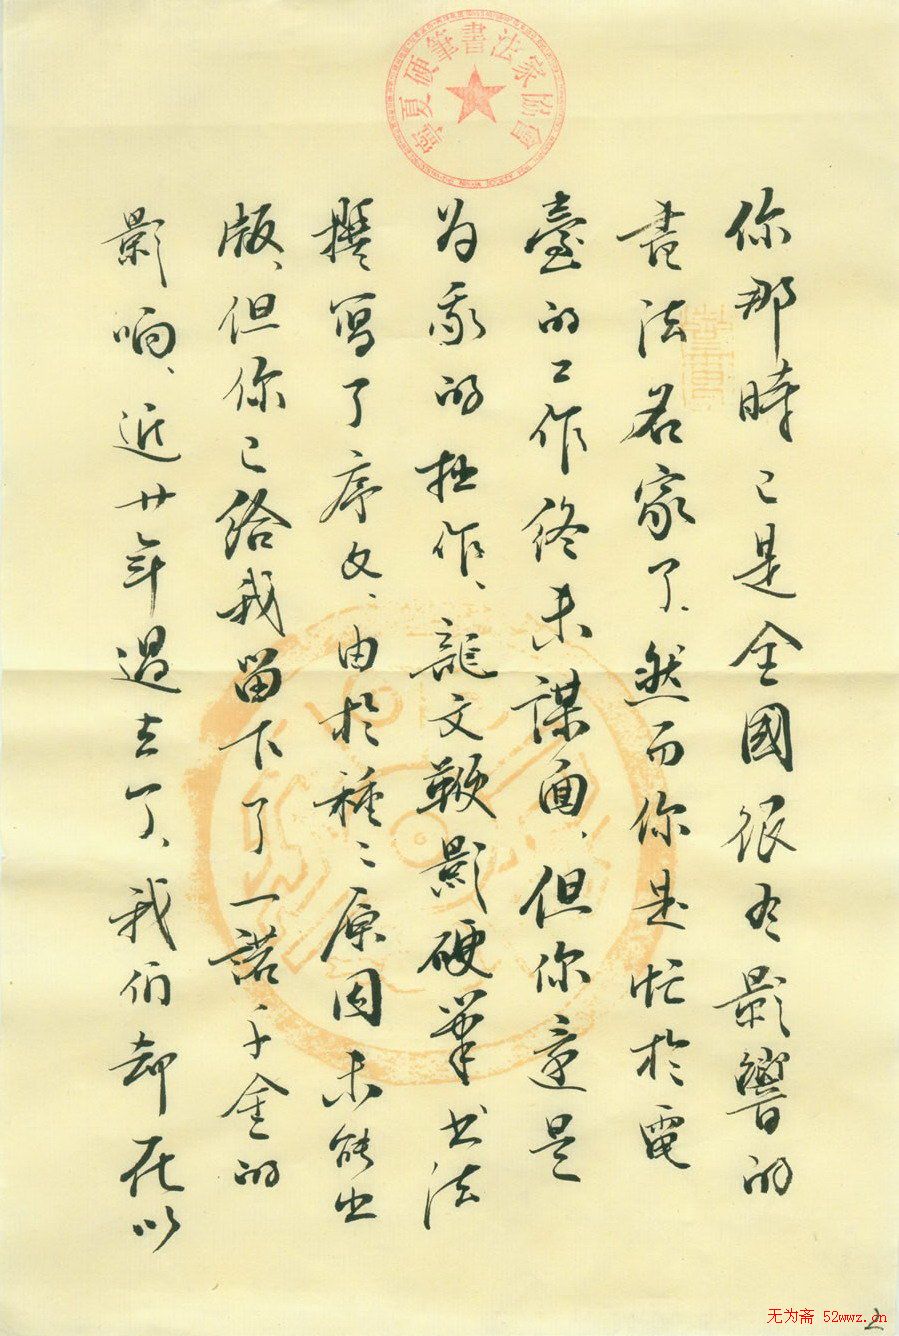 寧夏硬筆書法家協會
你那時已是全國很有影響的
書法名家了、然而你是忙於電
臺的工作終未謀面、但你還是
为我的拙作、龍文鞭影硬筆书法
撰寫了序文、由於種〻原因未能出
版、但你已给我留下了一諾千金的
影响、近廿年過去了、我们却在以
无为斋 52wwz.cn